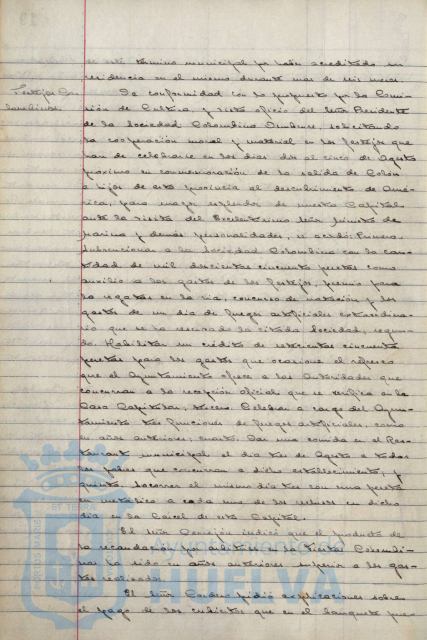 de este término municipal por haber acreditado su
residencia en el mismo durante mas de seis meses.
Festejos Co-
lombinos.
De conformidad con lo propuesto por la Comi-
sión de Cultura, y visto oficio del Señor Presidente
de la Sociedad Colombina Onubense, solicitando
la cooperación moral y material en los festejos que
han de celebrarse en los dias dos al cinco de Agosto
próximo en conmemoración de la salida de Colón
e hijos de esta provincia al descubrimiento de Amé-
rica, para mayor esplendor de nuestra Capital
ante la visita del Excelentísimo Señor Ministro de
Marina y demás personalidades, se acordó: Primero.
Subvencionar a la Sociedad Colombina con la can-
tidad de mil doscientas cincuenta pesetas como
auxilio a los gastos de los festejos, premio para
la regatas en la ria, concurso de natación y los
gastos de un dia de fuegos artificiales extraordina-
rio que se ha reservado la citada Sociedad; segun-
do. Habilitar un crédito de setecientas cincuenta
pesetas para los gastos que ocasione el refresco
que el Ayuntamiento ofrece a las Autoridades que
concurran a la recepción oficial que se verifica en la
Casa Capitular; tercero. Celebrar a cargo del Ayun-
tamiento tres funciones de fuegos artificiales, como
en años anteriores; cuarto. Dar una comida en el Res-
taurant municipal el dia tres de Agosto a todos
los pobres que concurran a dicho establecimiento; y
quinto. Socorrer el mismo dia tres con una peseta
en metálico a cada uno de los reclusos en dicho
dia en la Cárcel de esta Capital.
El Señor Cornejo indicó que el producto de
la recaudación por arbitrios en las fiestas Colombi-
nas ha sido en años anteriores superior a los gas-
tos realizados.
El Señor Cordero pidió explicaciones sobre
el pago de los cubiertos que en el banquete
Ayuntamiento de
HUELVA